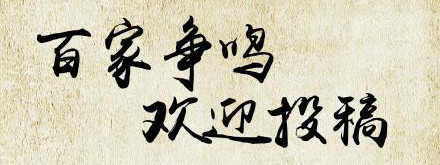 百家争鸣
欢迎投稿